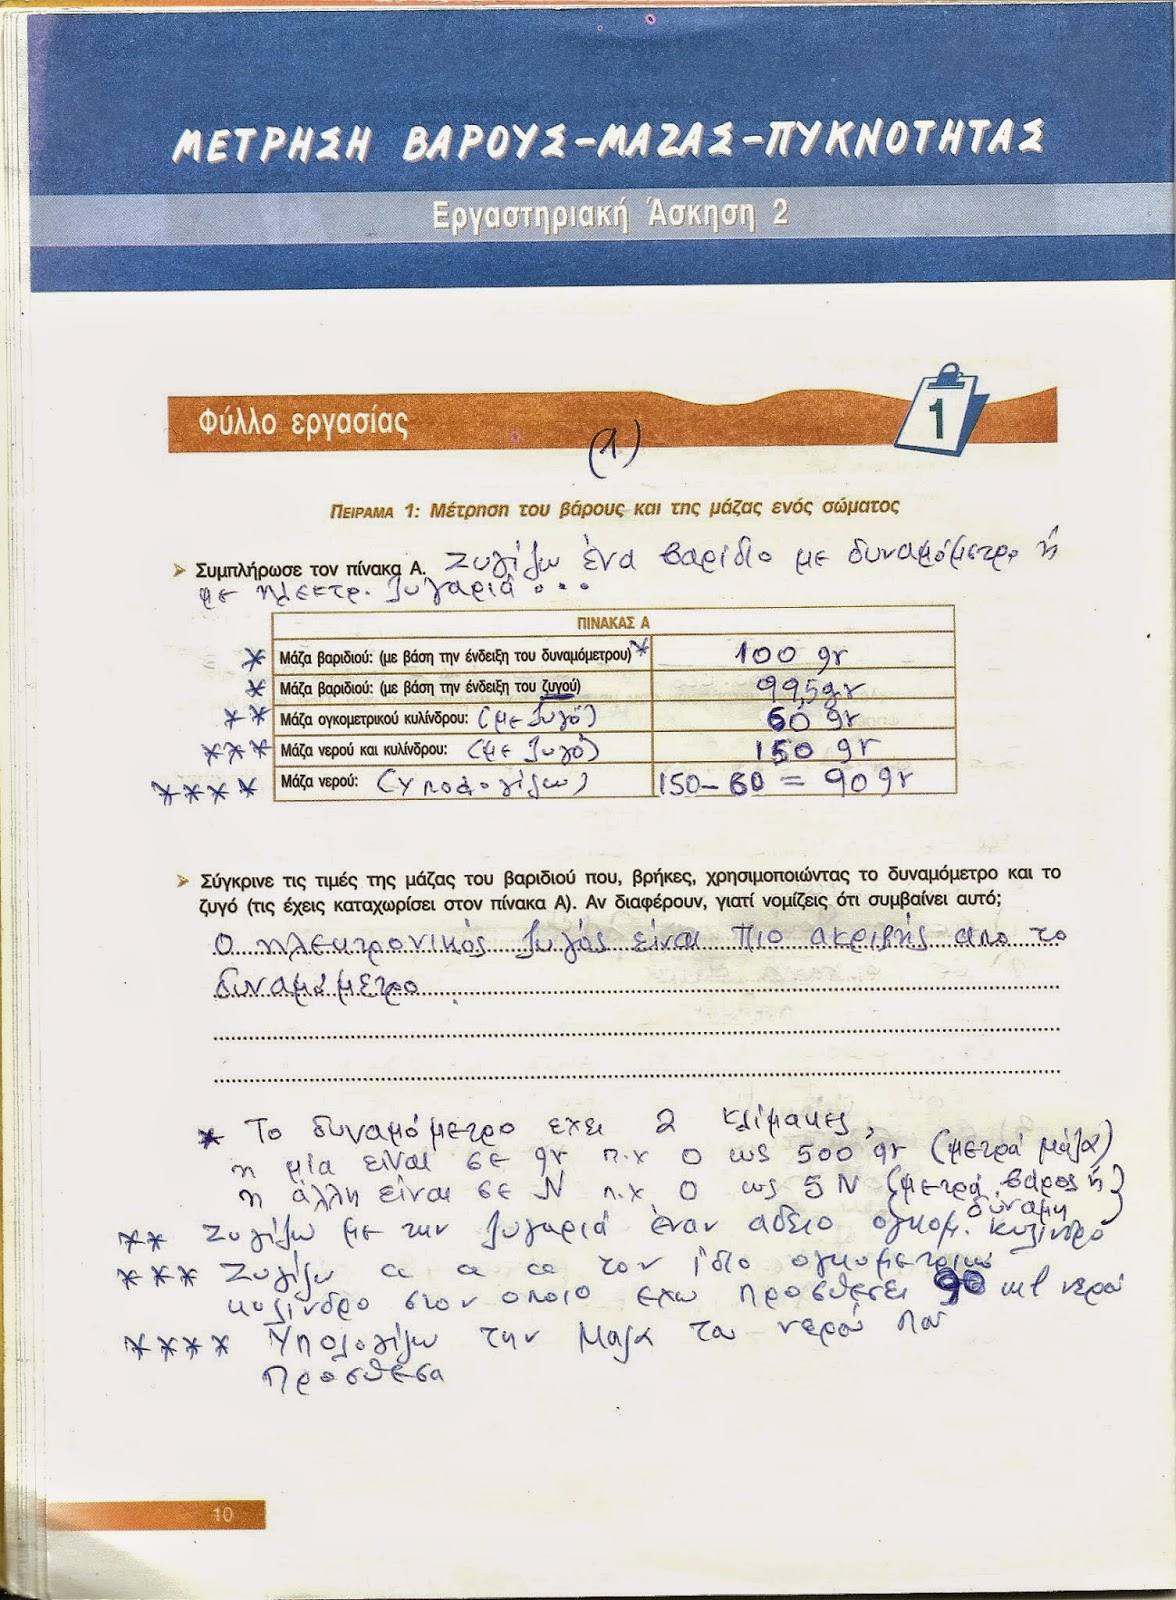 ΜΕΤΡΗΣΗ ΒΑΡΟΥΣ-ΜΑΖΑΣ-ΠΥΚΝΟΤΗΤΑΣ
Εργαστηριακή Άσκηση 2
Φύλλο εργασίας
1
(1)
ΠΕΙΡΑΜΑ 1: Μέτρηση του βάρους και της μάζας ενός σώματος
➤ Συμπλήρωσε τον πίνακα Α. Ζυγίζω ένα βαρίδιο με δυναμόμετρο ή
με ηλεκτρ. ζυγαριά...
ΠΙΝΑΚΑΣ Α
* Μάζα βαριδιού: (με βάση την ένδειξη του δυναμόμετρου)* 100 gr
* Μάζα βαριδιού: (με βάση την ένδειξη του ζυγού) 99,5gr
** Μάζα ογκομετρικού κυλίνδρου: (με ζυγό) 60 gr
*** Μάζα νερού και κυλίνδρου: (με ζυγό) 150 gr
**** Μάζα νερού: (υπολογίζω) 150-60 = 90 gr
➤ Σύγκρινε τις τιμές της μάζας του βαριδιού που, βρήκες, χρησιμοποιώντας το δυναμόμετρο και το
ζυγό (τις έχεις καταχωρίσει στον πίνακα Α). Αν διαφέρουν, γιατί νομίζεις ότι συμβαίνει αυτό;
Ο ηλεκτρονικός ζυγός είναι πιο ακριβής απο το
δυναμόμετρο.
* Το δυναμόμετρο εχει 2 κλίμακες,
η μία είναι σε gr π.χ 0 ως 500 gr (μετρά μάζα)
η άλλη είναι σε N π.χ 0 ως 5N (μετρά βάρος ή
δύναμη)
** Ζυγίζω με την ζυγαριά έναν αδειο ογκομ. κυλινδρο
*** Ζυγίζω " " " τον ίδιο ογκομετρικό
κυλινδρο στον οποιο εχω προσθεσει 90 ml νερού
**** Υπολογίζω την μαζα του νερού που
προσθεσα
10